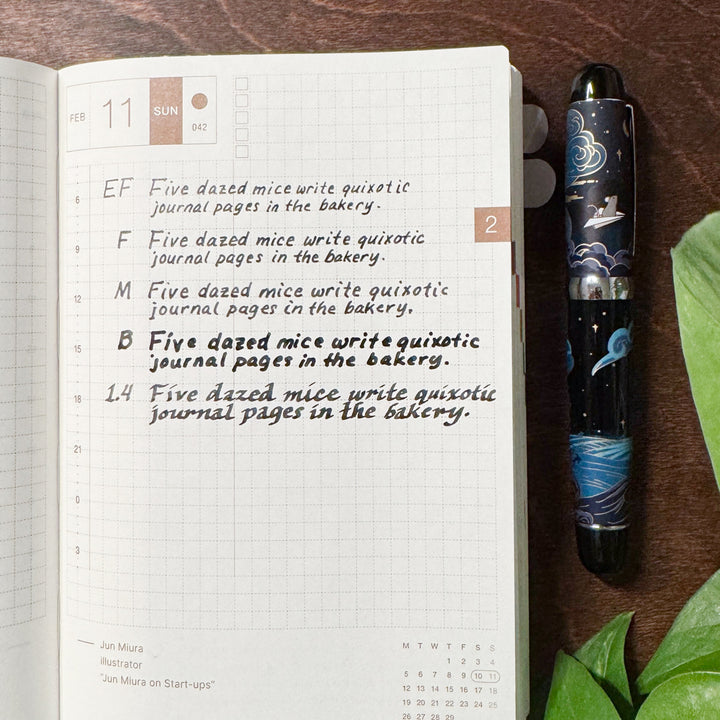 FEB 11 SUN
042
6
EF Five dazed mice write quixotic
journal pages in the bakery.
2
9
F Five dazed mice write quixotic
journal pages in the bakery.
12
M Five dazed mice write quixotic
journal pages in the bakery.
15
B Five dazed mice write quixotic
journal pages in the bakery.
18
1.4 Five dazed mice write quixotic
journal pages in the bakery.
21
0
3
Jun Miura
illustrator
"Jun Miura on Start-ups"
M T W T F S S
1 2 3 4
5 6 7 8 9 10 11
12 13 14 15 16 17 18
19 20 21 22 23 24 25
26 27 28 29